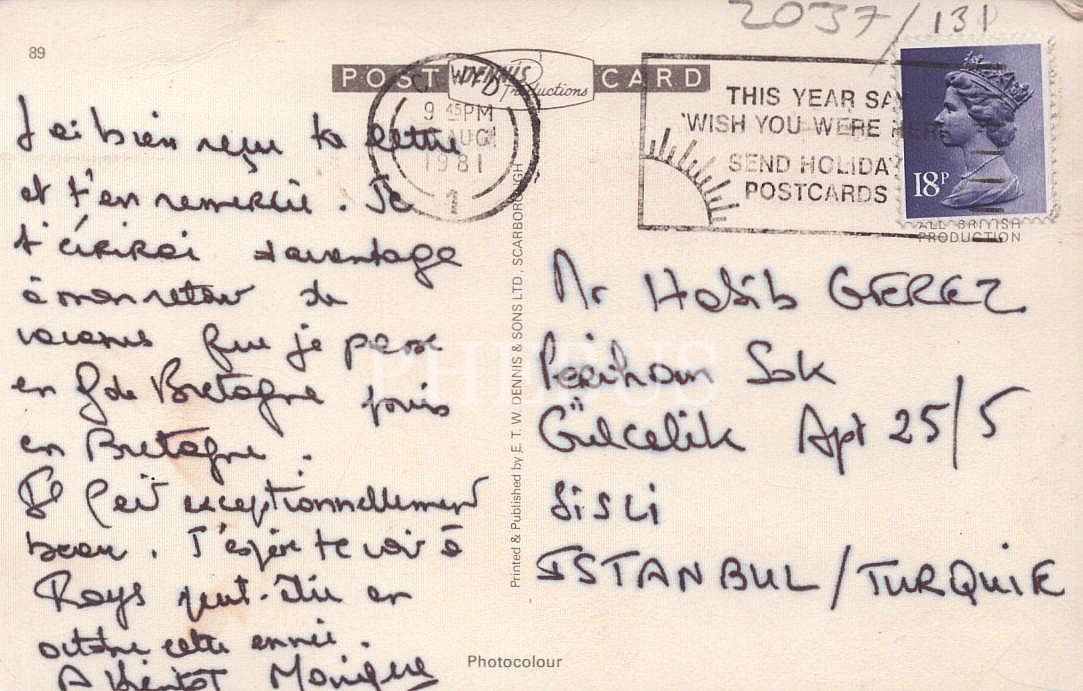 2037/131
89
POST CARD
DENNIS
Productions
9 45PM
AUG
1981
1
THIS YEAR SAY
'WISH YOU WERE HERE
SEND HOLIDAY
POSTCARDS
18P
ALL BRITISH
PRODUCTION
J'ai bien reçu ta lettre
et t'en remercie. Je
t'écrirai davantage
à mon retour de
vacances que je passe
en Gde Bretagne puis
en Bretagne.
Il fait exceptionnellement
beau. J'espère te voir à
peut-être en
octobre cette année.
A bientôt Monique
Printed & Published by E. T. W. DENNIS & SONS LTD, SCARBOROUGH
Mr Habib GEREZ
Perihan Sok
Gülcelik Apt 25/5
SiSLi
ISTANBUL / TURQUIE
Photocolour
PHEBUS